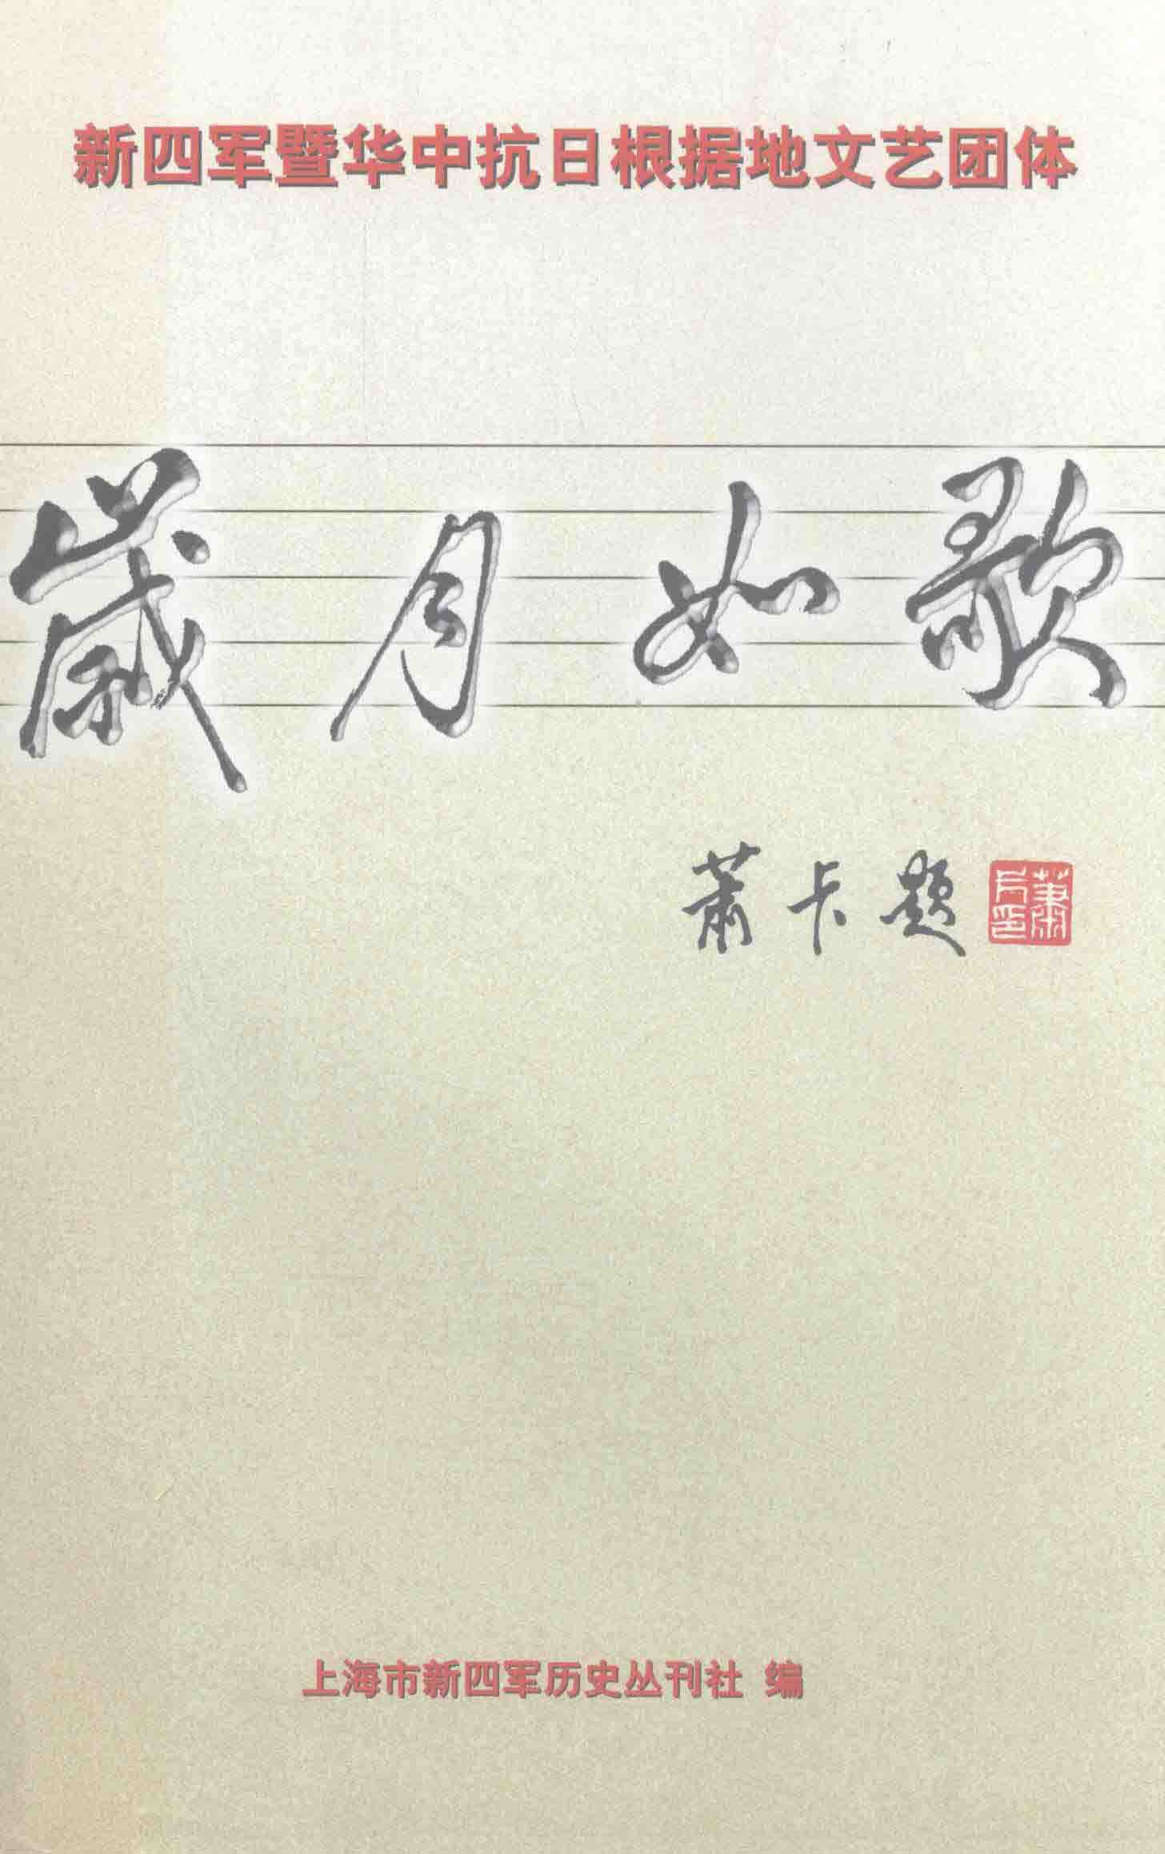 新四军暨华中抗日根据地文艺团体
歳月如歌
萧卡题
萧卡印
上海市新四军历史丛刊社 编